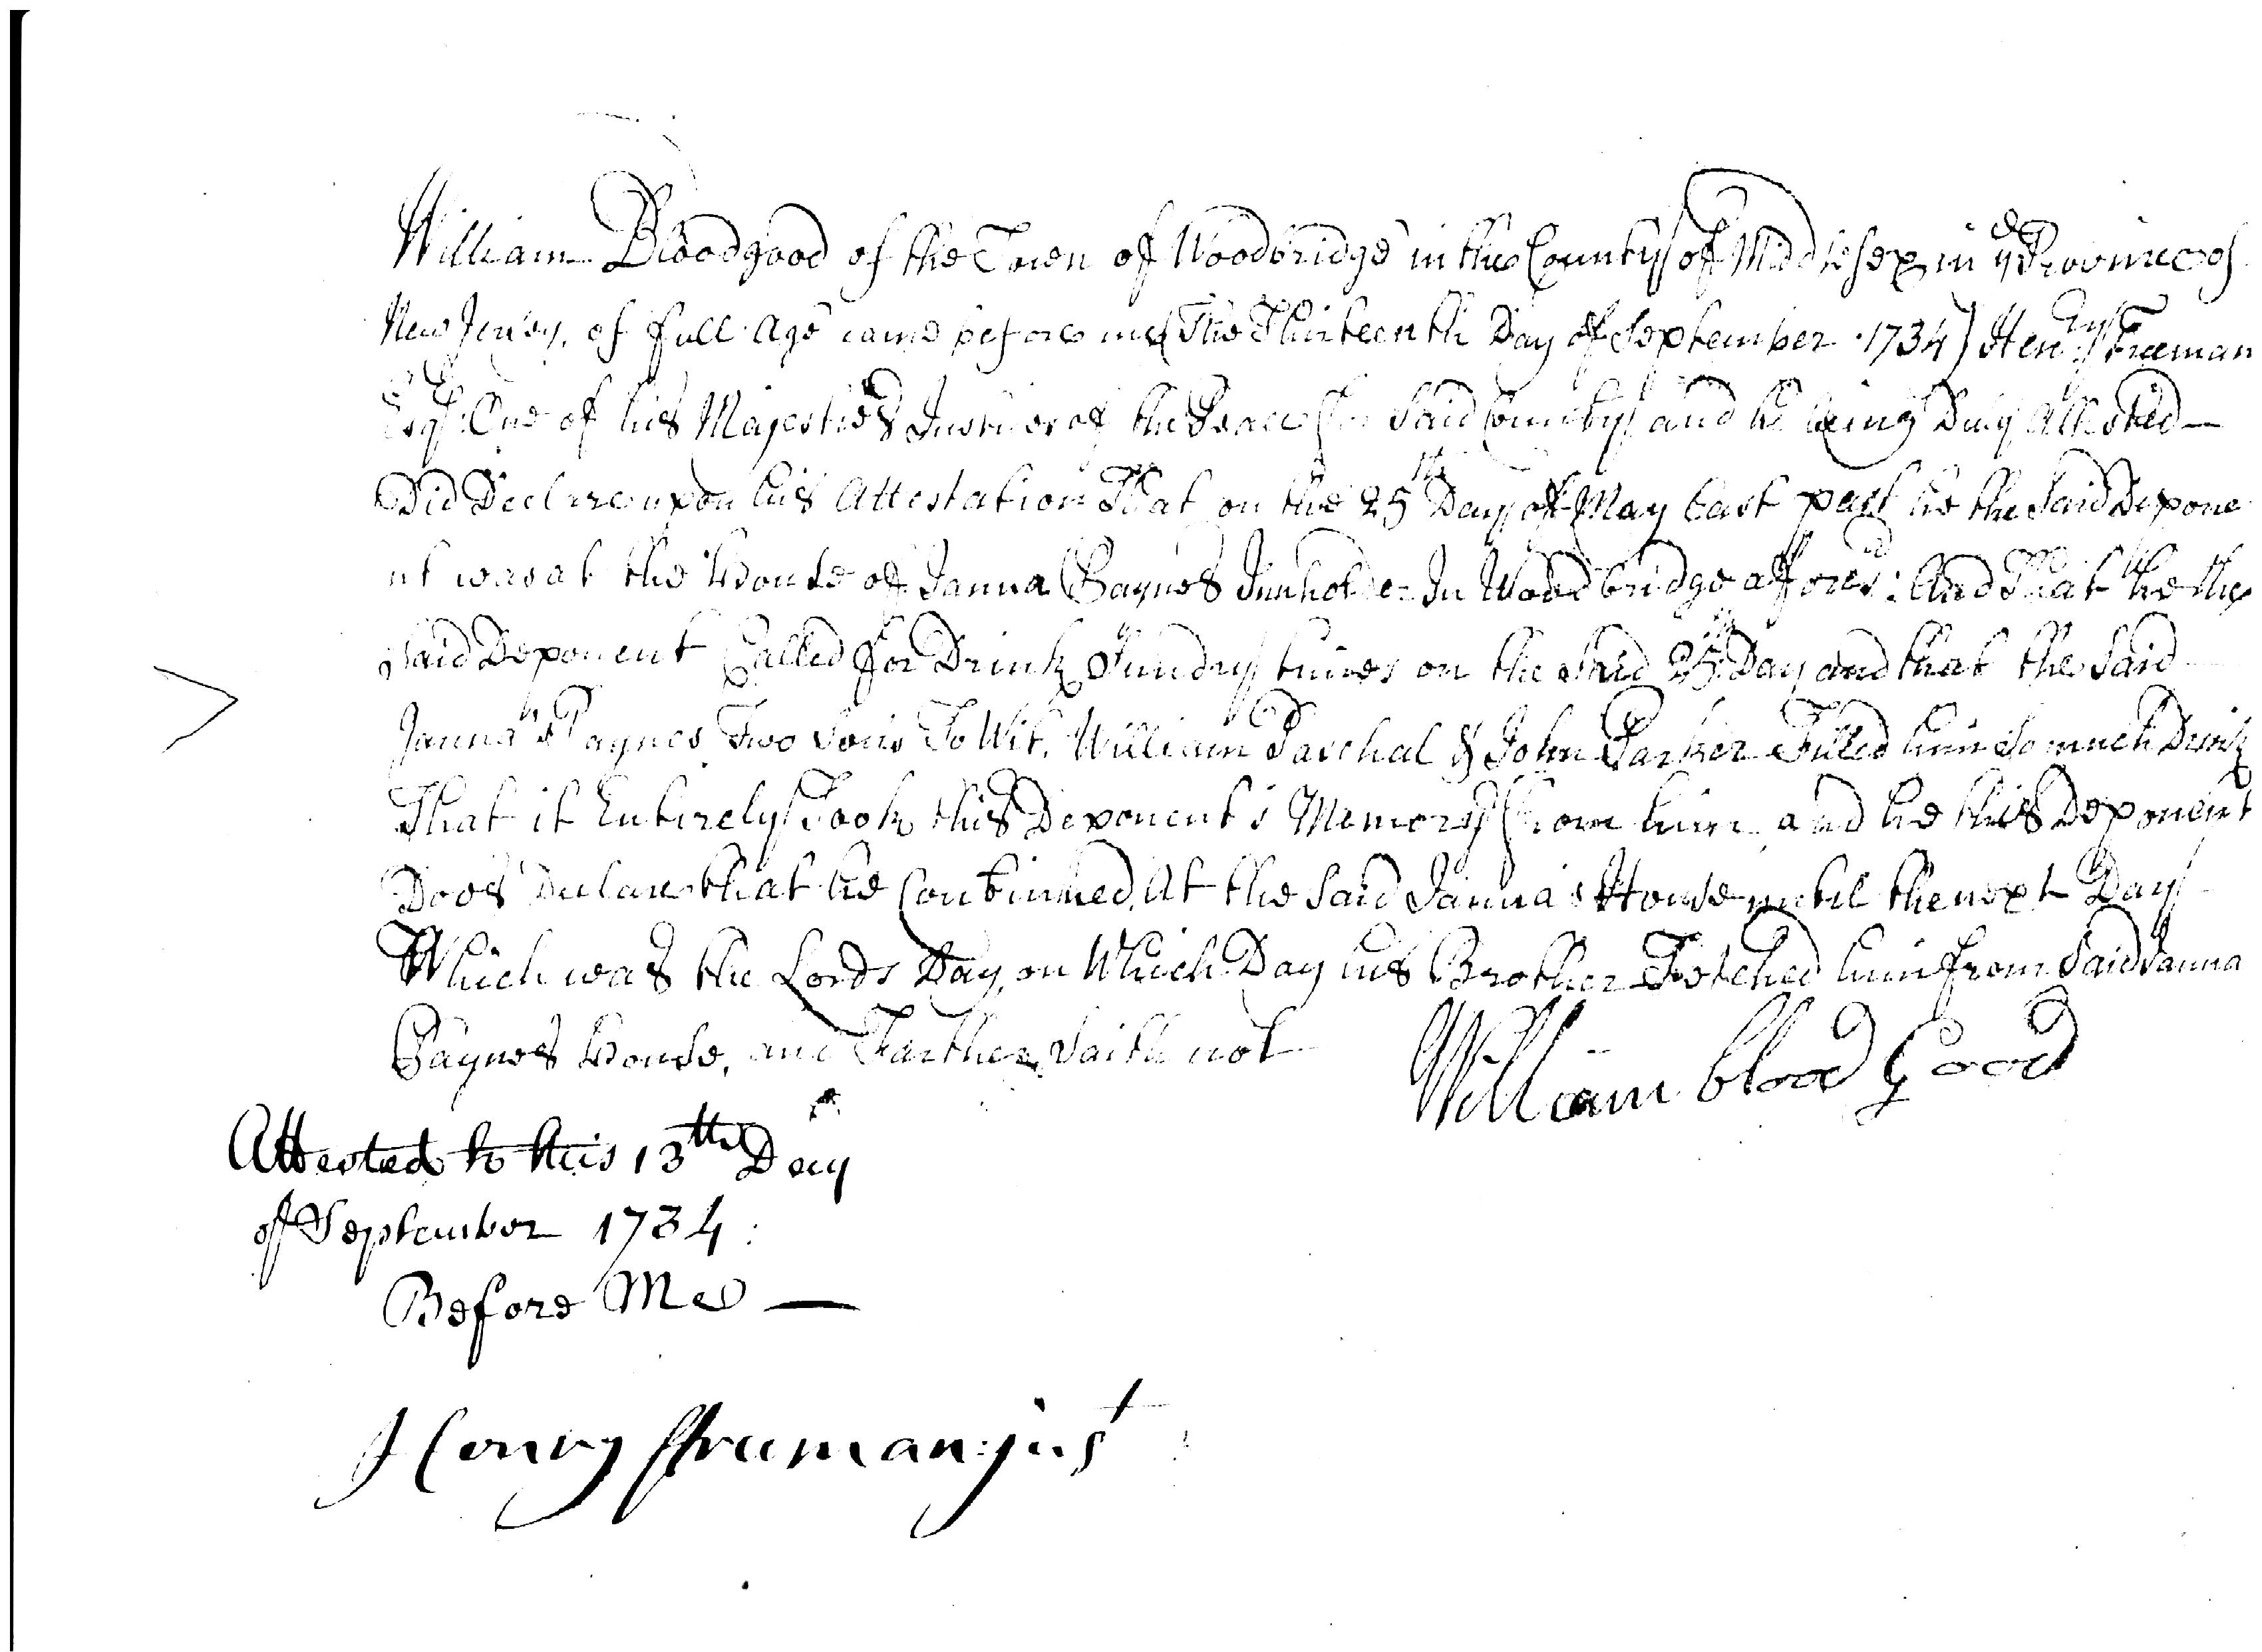 William Bloodgood of the Town of Woodbridge in the County of Middlesex in ye Province of
New Jersey, of full Age came before me (The Thirteenth Day of September 1734) Henry Freeman
Esqr: One of his Majesties Justices of the Peace for Said County and he being Duly Attested
Did Declare upon his Attestation That on the 25th Day of May Last past he the Said Depone
nt was at the House of Janna Paynes Innholder In Woodbridge afforesd: And That he the
Said Deponent Called for Drink Sundry times on the Said 25th Day and that the Said
Janna Paynes Two Sons To Wit, William Paschal & John Parker Filled him So much Drink
That it Entirely Took this Deponent's Memory from him and he this Deponent
Does Declare that he Continued At the Said Janna's House untill the next Day
Which was the Lords Day, on Which Day his Brother Fetched him from Said Janna
Paynes House, and Farther Saith not
William blood Good
Attested to this 13th Day
of September 1734:
Before Me —
Henry ffreeman: just